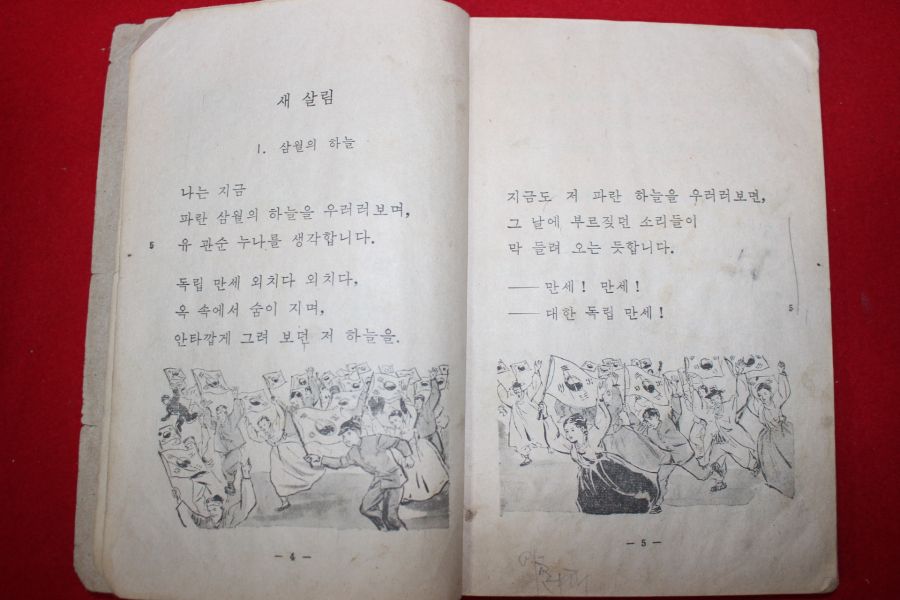 새 살림
1. 삼월의 하늘
나는 지금
파란 삼월의 하늘을 우러러보며,
5 유 관순 누나를 생각합니다.
독립 만세 외치다 외치다,
옥 속에서 숨이 지며,
안타깝게 그려 보던 저 하늘을.
— 4 —
지금도 저 파란 하늘을 우러러보면,
그 날에 부르짖던 소리들이
막 들려 오는 듯합니다.
── 만세! 만세!
── 대한 독립 만세! 5
— 5 —